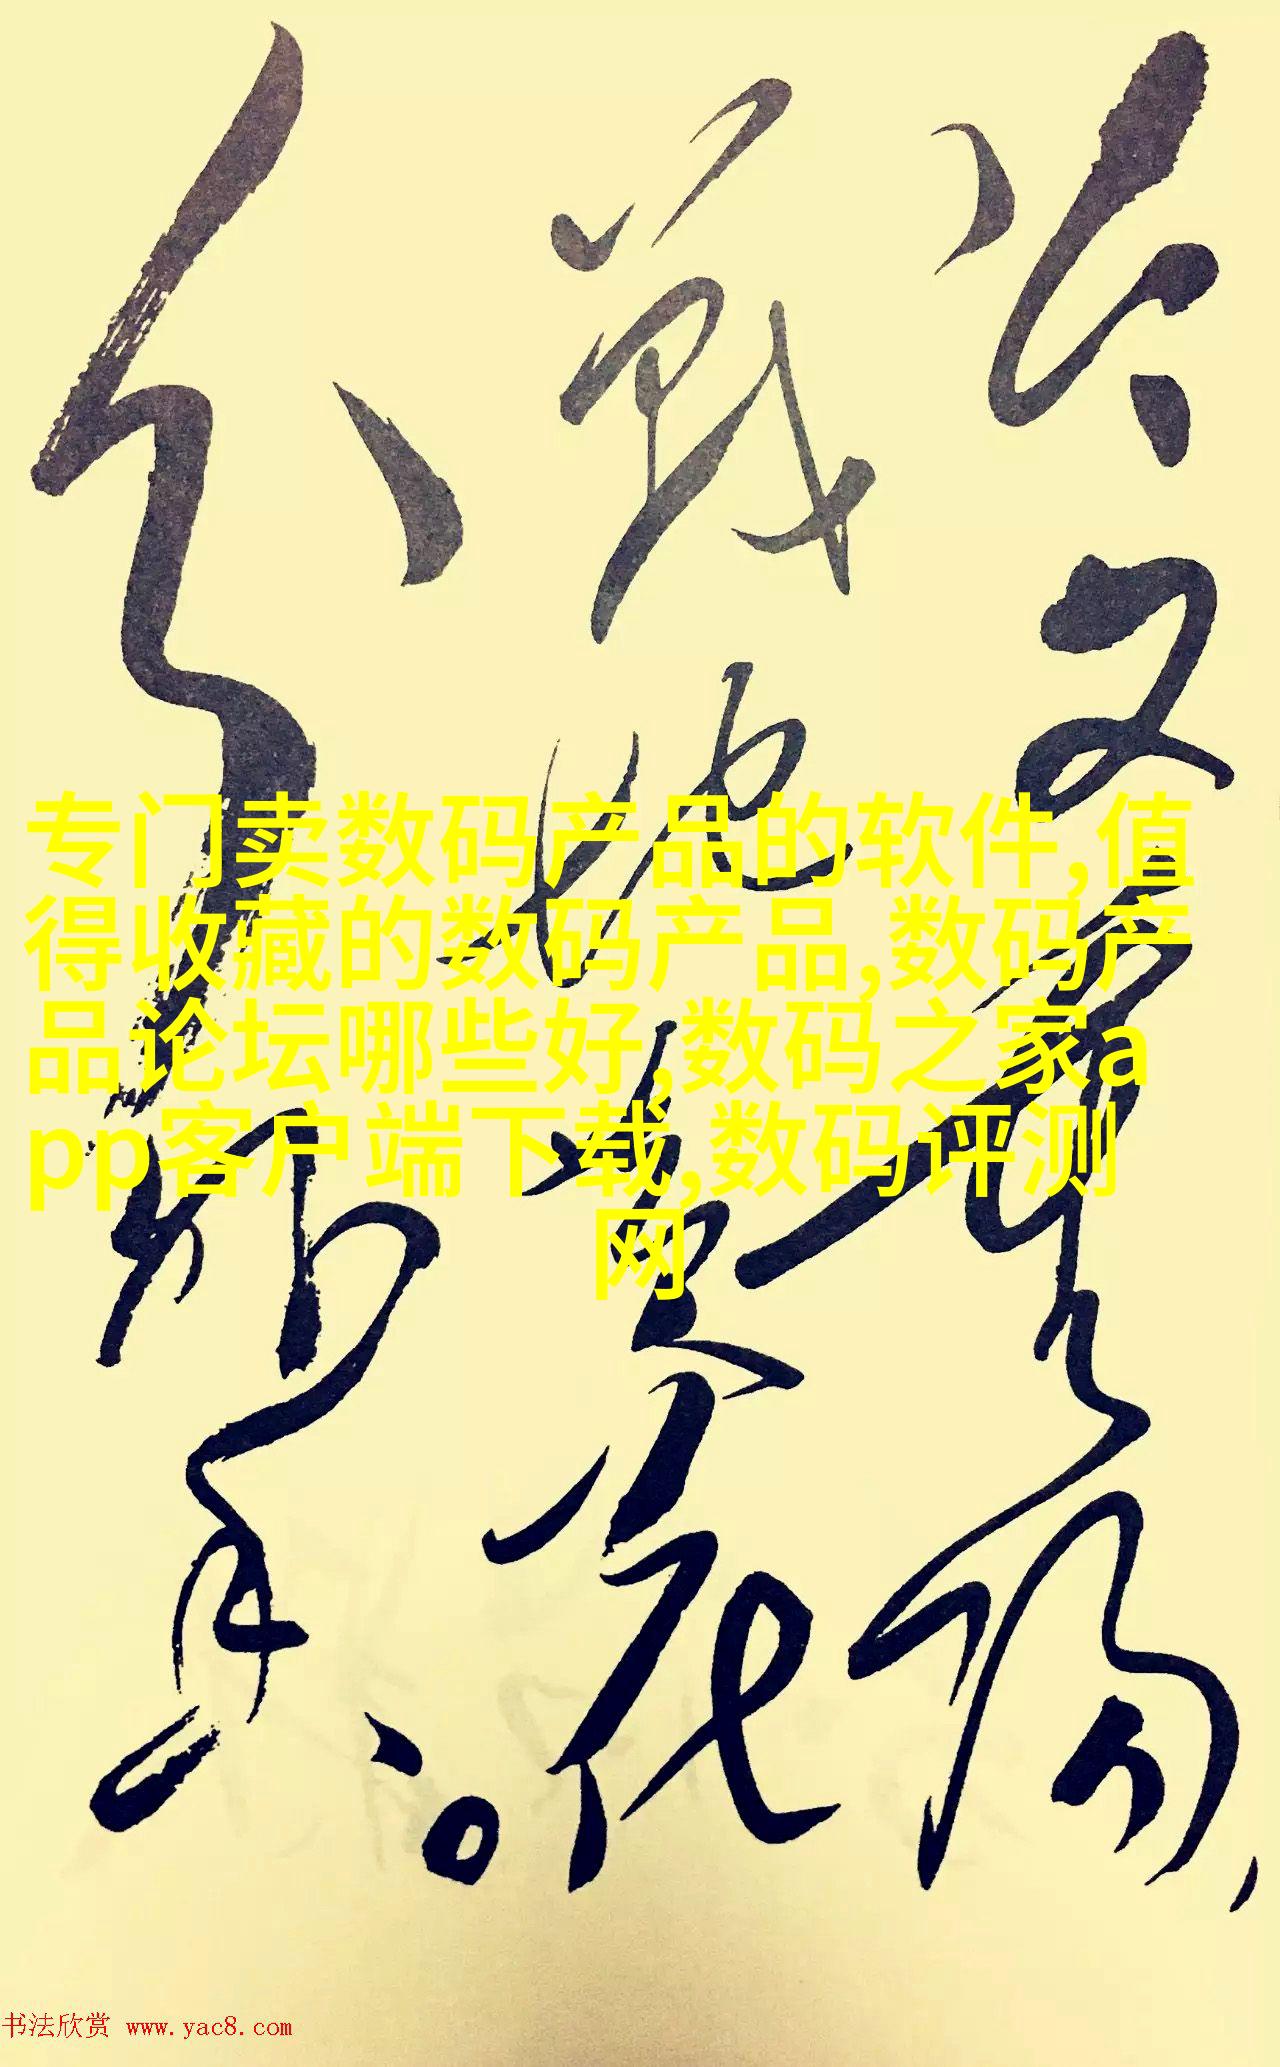 今又重陽，
戰地黃花
分外香。
专门卖数码产品的软件,值
得收藏的数码产品,数码产
品论坛哪些好,数码之家a
pp客户端下载,数码评测
网
书法欣赏 www.yac8.com